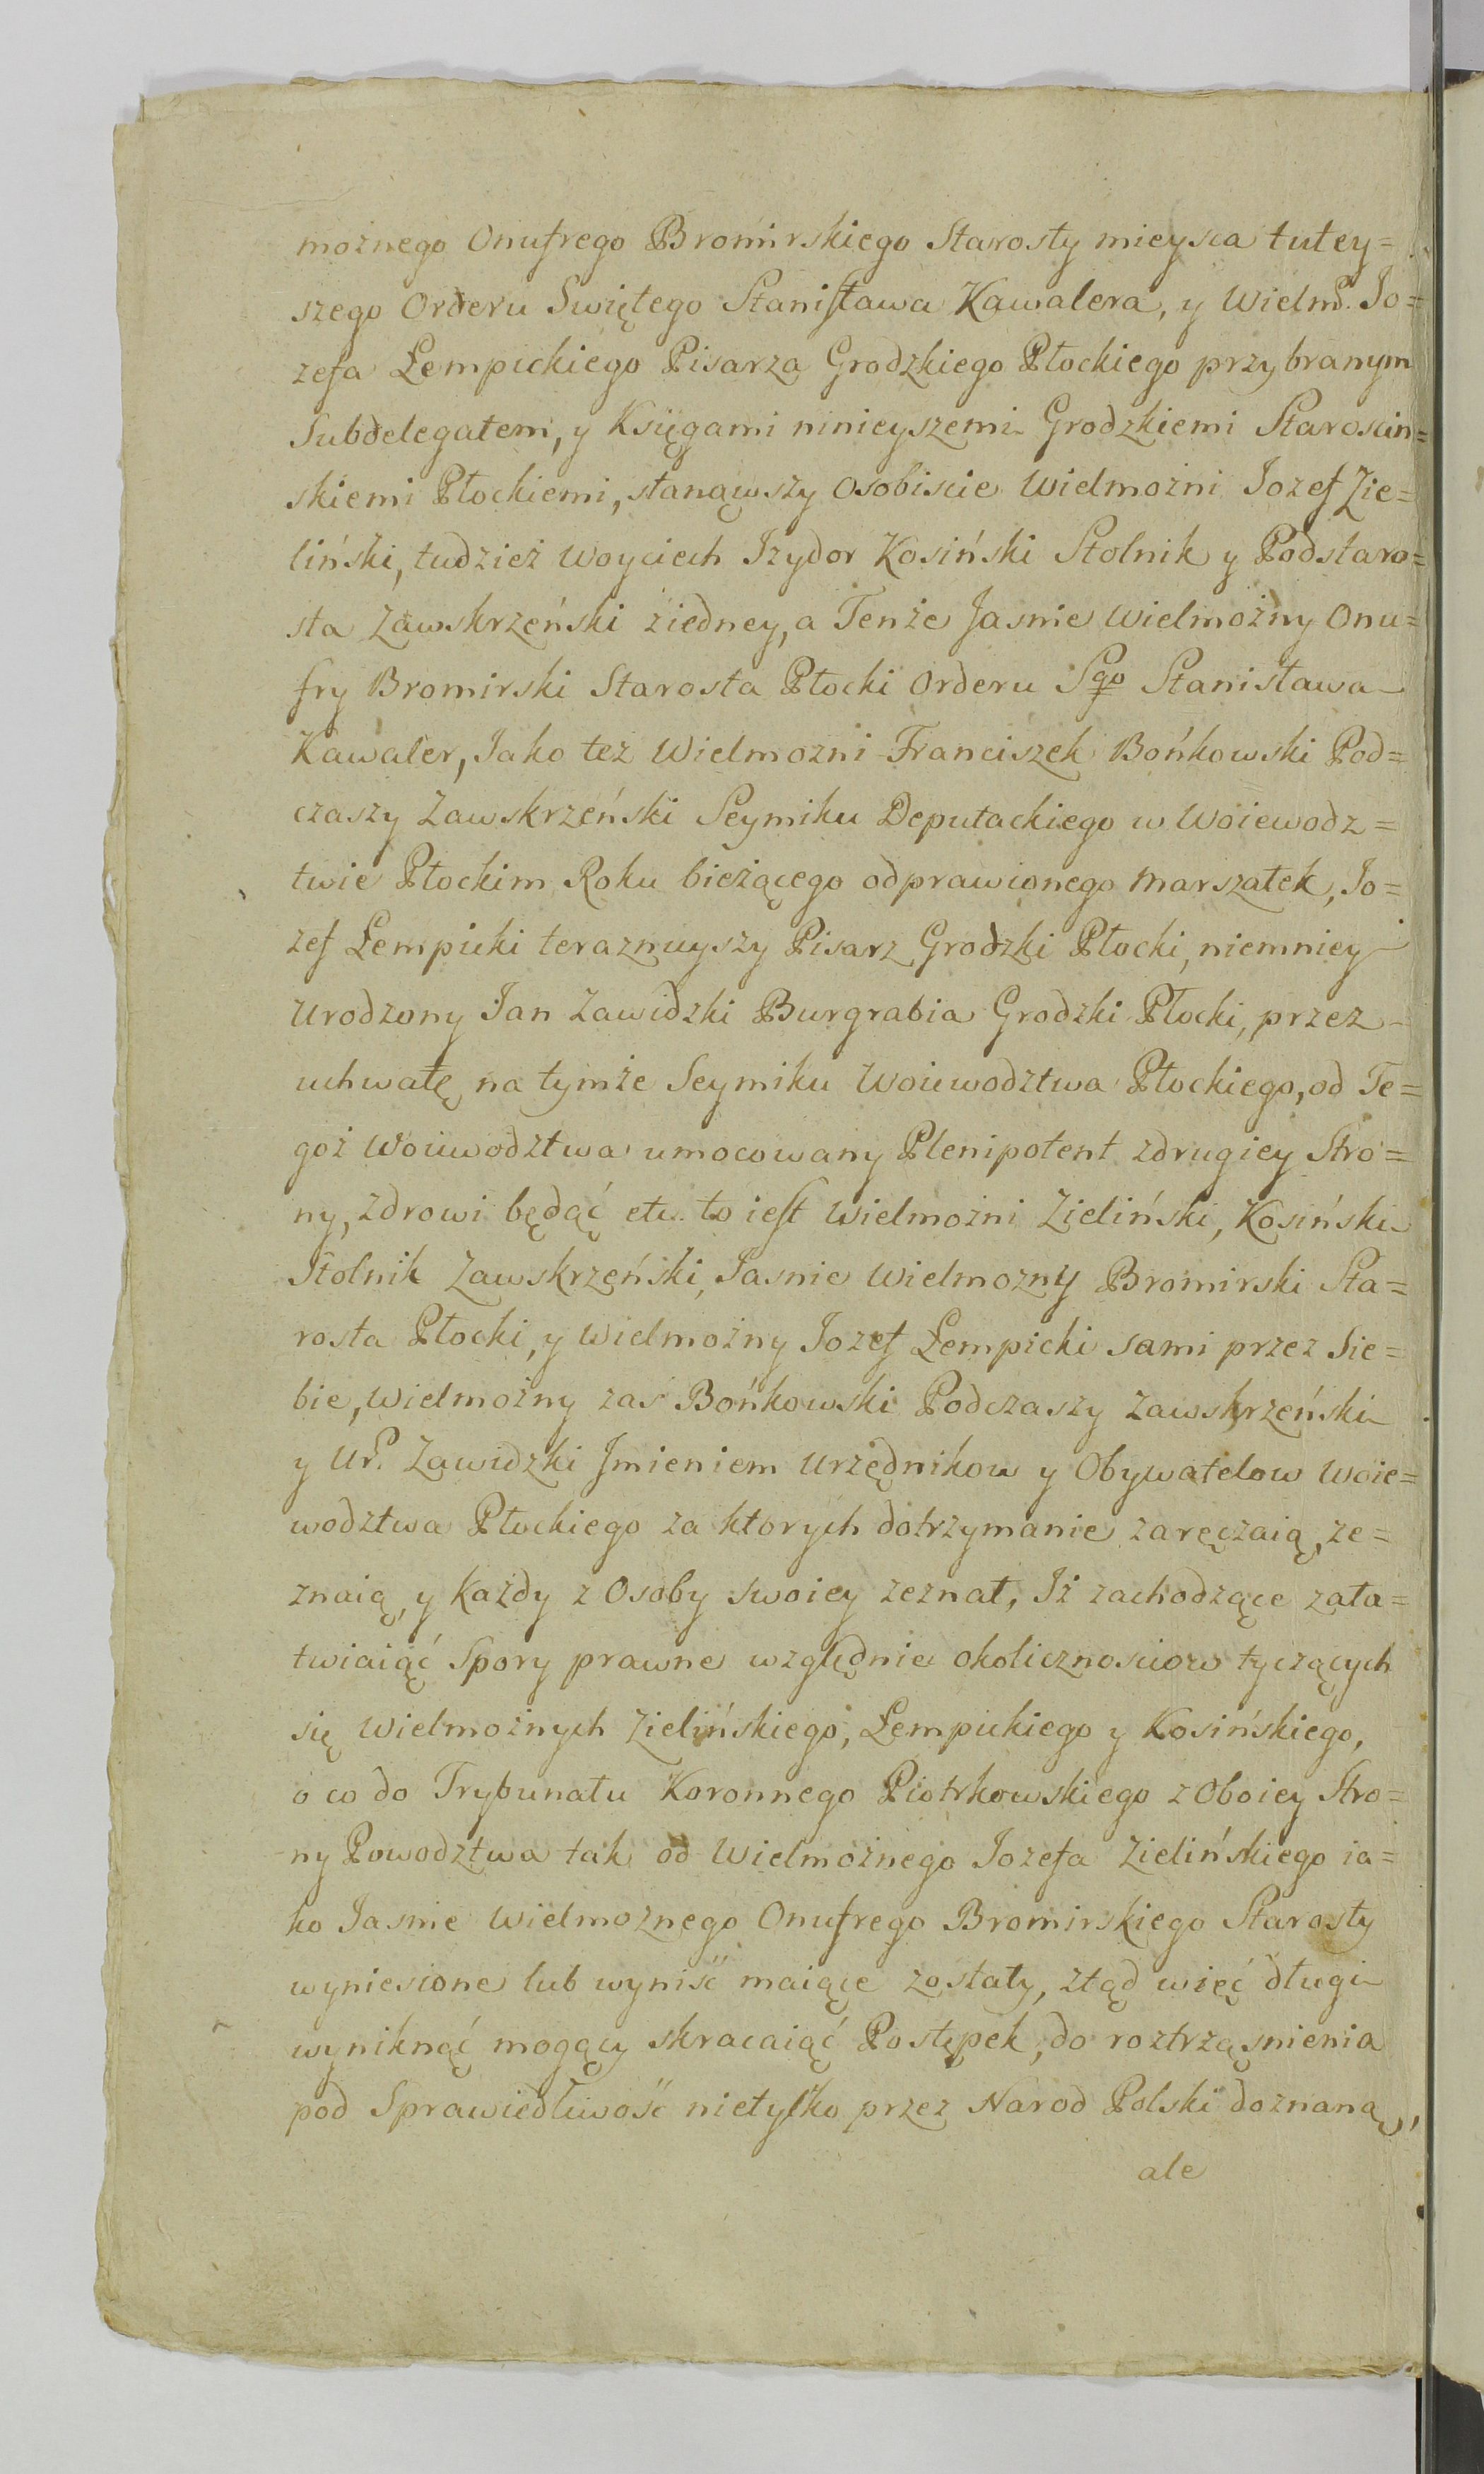 możnego Onufrego Bromirskiego Starosty mieysca tutey=
szego Orderu Swiętego Stanisława Kawalera, y Wielmo. Jo=
zefa Łempickiego Pisarza Grodzkiego Płockiego przybranym
Subdelegatem, y Księgami ninieyszemi Grodzkiemi Staroscin=
skiemi Płockiemi, stanąwszy osobiscie Wielmożni Jozef Zie=
liński, tudzież Woyciech Izydor Kosiński Stolnik y Podstaro=
sta Zawskrzeński ziedney, a Tenże Jasnie Wielmożny Onu=
fry Bromirski Starosta Płocki Orderu Sgo Stanisława
Kawaler, Jako też Wielmozni Franciszek Bońkowski Pod=
czaszy Zawskrzeński Seymiku Deputackiego w Woiewodz=
twie Płockim Roku bieżącego odprawionego Marszałek, Jo=
zef Łempicki teraznieyszy Pisarz Grodzki Płocki, niemniey
Urodzony Jan Zawidzki Burgrabia Grodzki Płocki, przez
uchwałę na tymże Seymiku Woiewodztwa Płockiego, od Te=
goż Woiewodztwa umocowany Plenipotent zdrugiey Stro=
ny, zdrowi będąć etc. to iest Wielmożni Zieliński, Kosiński
Stolnik Zawskrzeński, Jasnie Wielmozny Bromirski Sta=
rosta Płocki, y Wielmożny Jozef Łempicki sami przez Sie=
bie, Wielmożny zaś Bońkowski Podczaszy Zawskrzeński
y Ur. Zawidzki Jmieniem Urzędnikow y Obywatelow Woie=
wodztwa Płockiego za ktorych dotrzymanie zaręczaią, ze=
znaią, y Każdy z Osoby swoiey zeznał, Iż zachodzące zała=
twiaiąć Spory prawne względnie okolicznosciow tyczących
się Wielmożnych Zielińskiego, Łempickiego y Kosińskiego,
o co do Trybunału Koronnego Piotrkowskiego z Oboiey Stro=
ny Powodztwa tak od Wielmożnego Jozefa Zielińskiego ia=
ko Jasnie Wielmożnego Onufrego Bromirskiego Starosty
wyniesione lub wyniść maiące zostały, ztąd więć długi
wyniknąć mogący skracaiąć Postępek, do roztrząsnienia
pod Sprawiedliwość nietylko przez Narod Polski doznaną,
ale